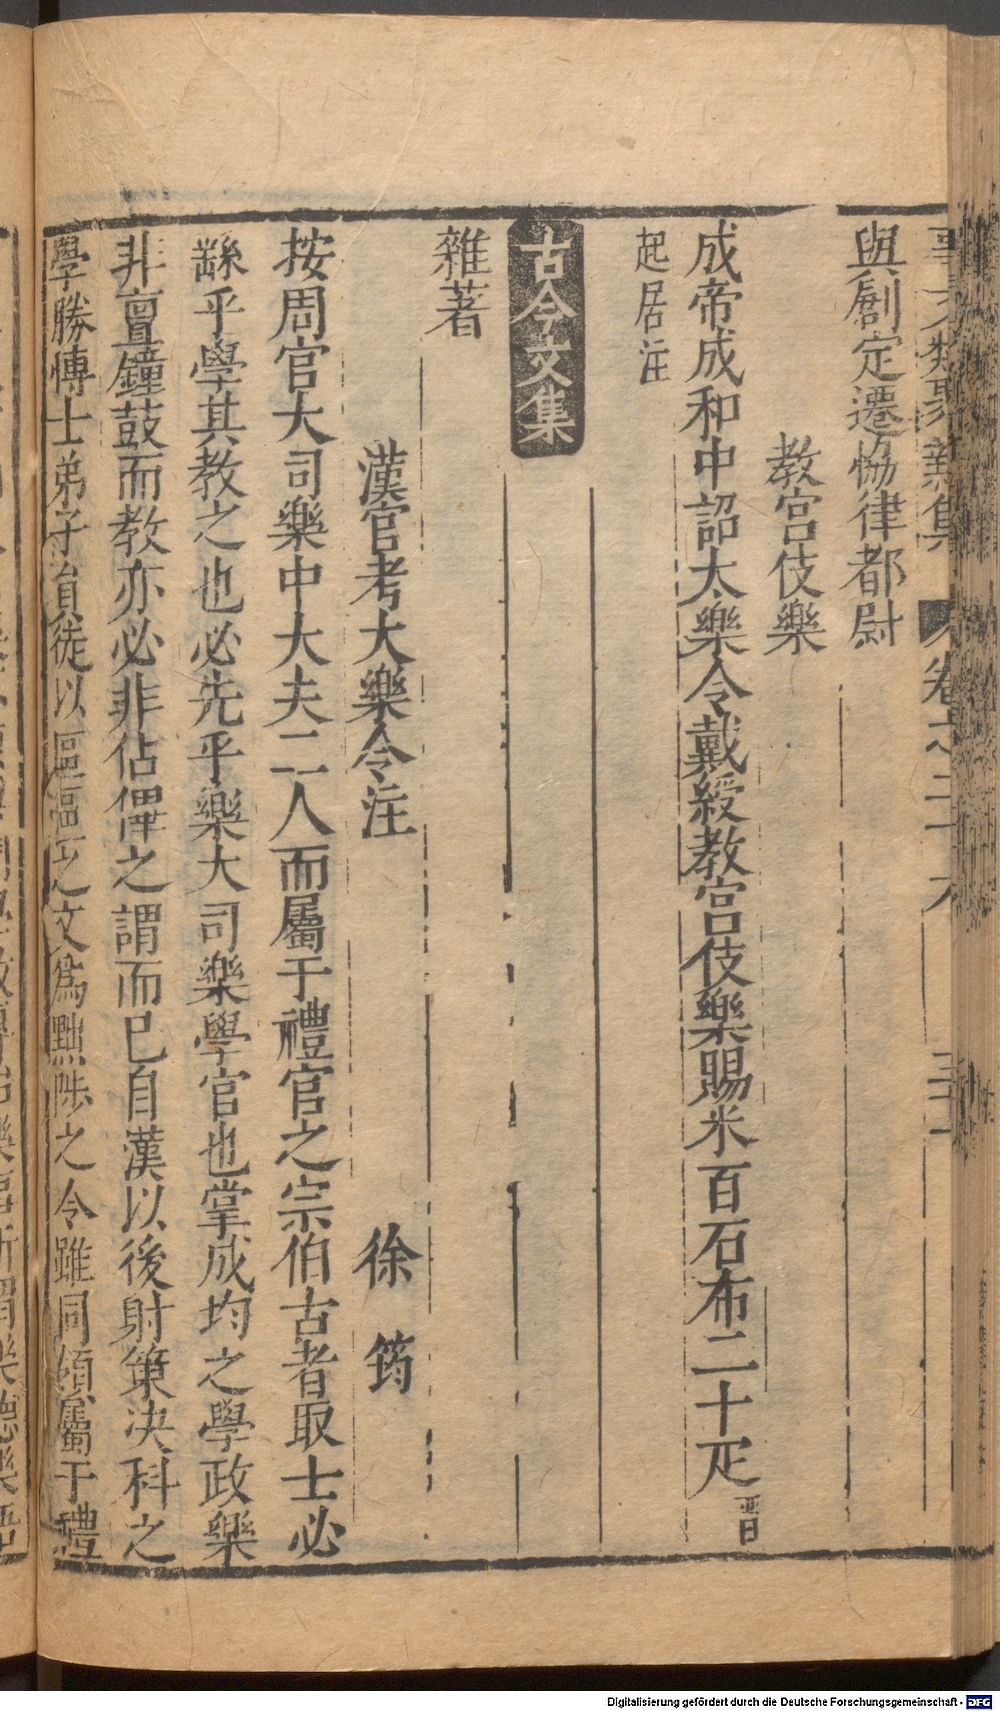 事文類聚新集 卷之二十六 三十一
與創定遷恊律都尉
教宫伎樂
成帝成和中詔太樂令戴綬教宫伎樂賜米百石布二十疋晋
起居注
古今文集
雜著
漢官考大樂令注 徐筠
按周官大司樂中大夫二人而屬于禮官之宗伯古者取士必
繇乎學其教之也必先乎樂大司樂學官也掌成均之學政樂
非亶鐘鼓而教亦必非佔僤之謂而已自漢以後射策决科之
學勝博士弟子員徒以區區之文為黜陟之令雖同領屬于禮
Digitalisierung gefördert durch die Deutsche Forschungsgemeinschaft - DFG